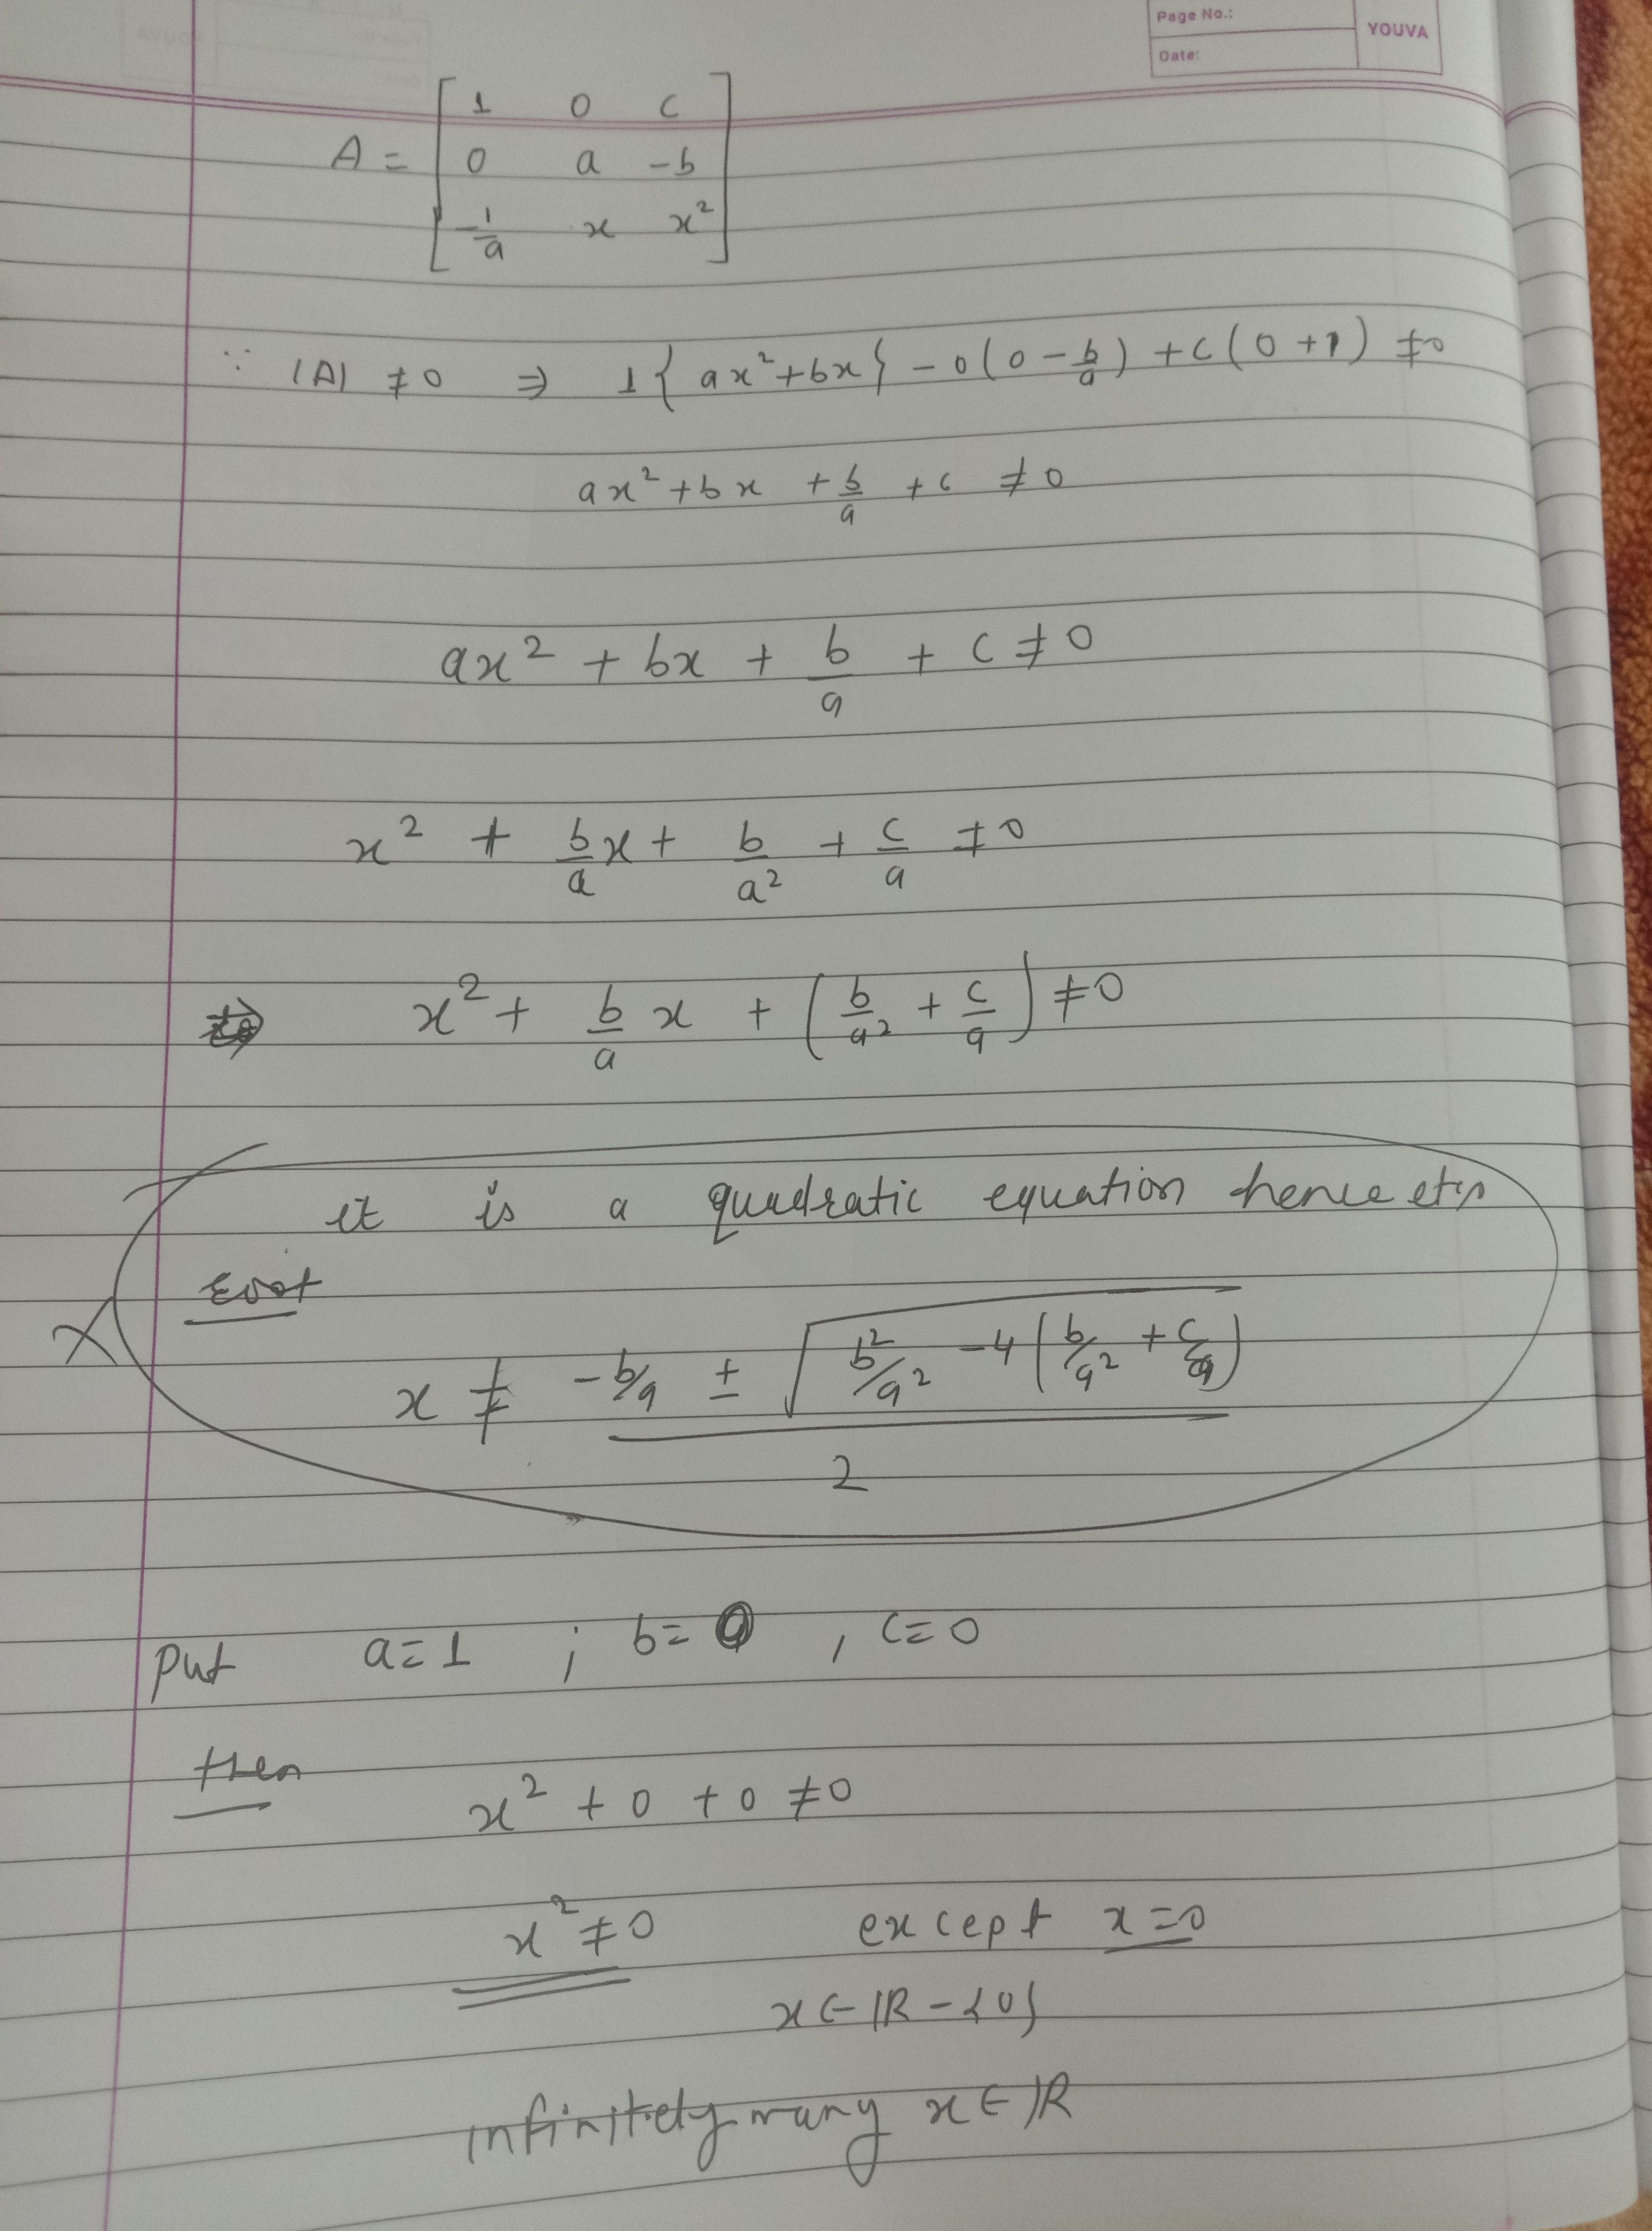 Page No.:
Date:
YOUVA
A = [ 1 0 c
0 a -b
-1/a x x² ]
∵ |A| ≠ 0 ⇒ 1{ax²+bx} - 0(0 - b/a) + c(0+1) ≠ 0
ax² + bx + b/a + c ≠ 0
ax² + bx + b/a + c ≠ 0
x² + b/a x + b/a² + c/a ≠ 0
x² + b/a x + (b/a² + c/a) ≠ 0
it is a quadratic equation hence
x ≠ (-b/a ± √(b²/a² - 4(b/a² + c/a))) / 2
Put a=1 ; b=0 , c=0
then
x² + 0 + 0 ≠ 0
x² ≠ 0 except x=0
x∈ℝ-{0}
infinitely many x∈ℝ